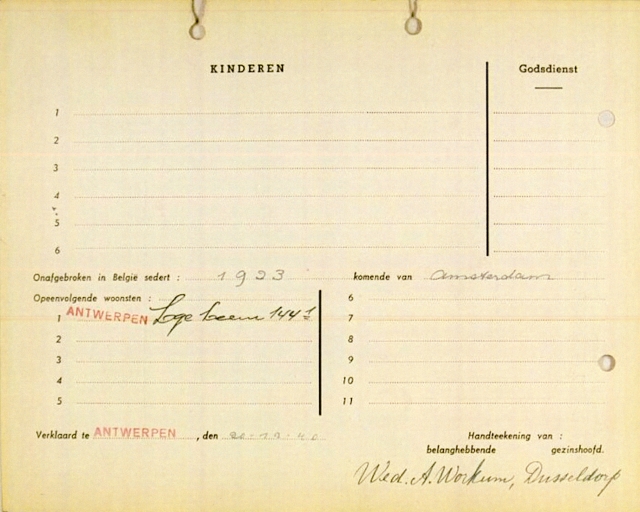 KINDEREN Godsdienst
1
2
3
4
5
6
Onafgebroken in België sedert : 1923 komende van Amsterdam
Opeenvolgende woonsten :
1 ANTWERPEN 144
2
3
4
5
6
7
8
9
10
11
Verklaard te ANTWERPEN , den 20-12-40
Handteekening van :
belanghebbende gezinshoofd.
Wed. A. Workum, Dusseldorp